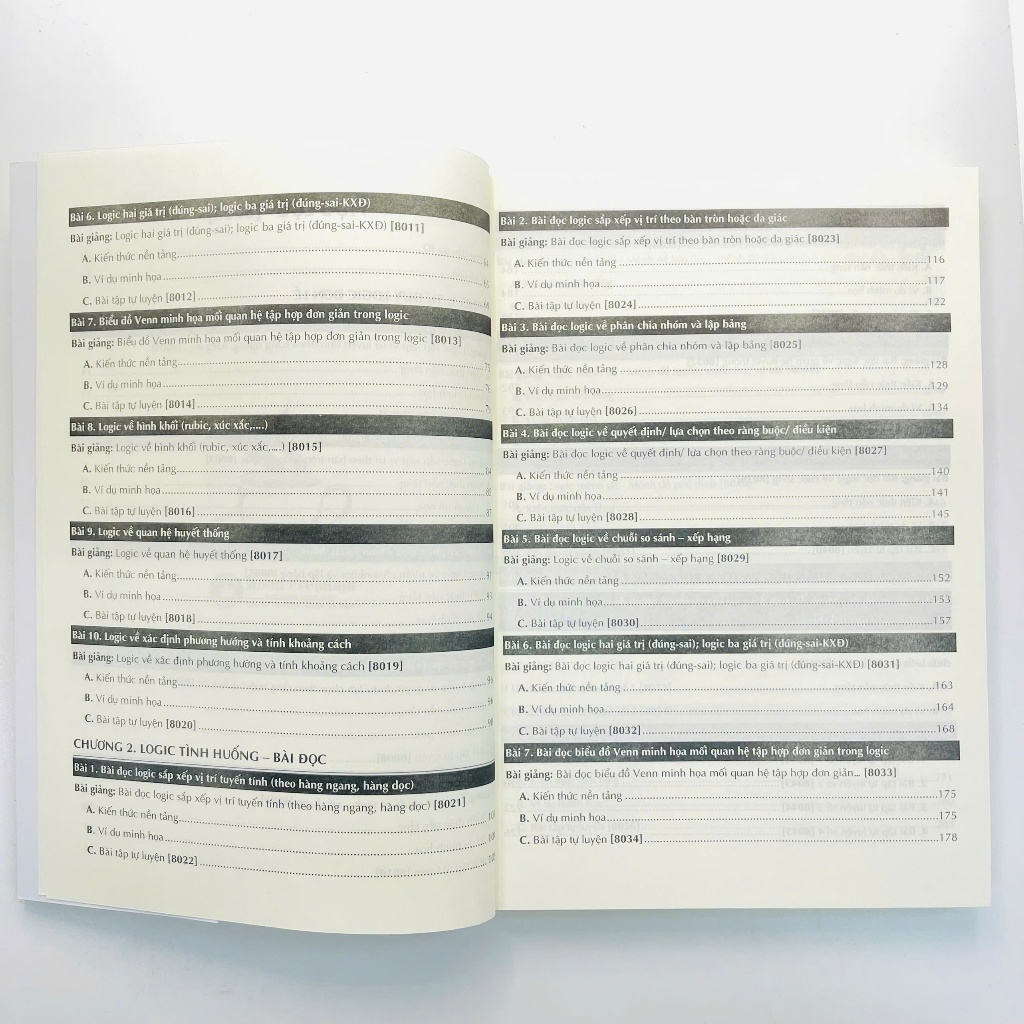 Bài 6. Logic hai giá trị (đúng-sai); logic ba giá trị (đúng-sai-KXĐ)
Bài giảng: Logic hai giá trị (đúng-sai); logic ba giá trị (đúng-sai-KXĐ) [8011]
A. Kiến thức nền tảng
B. Ví dụ minh họa
C. Bài tập tự luyện [8012]
Bài 7. Biểu đồ Venn minh họa mối quan hệ tập hợp đơn giản trong logic
Bài giảng: Biểu đồ Venn minh họa mối quan hệ tập hợp đơn giản trong logic [8013]
A. Kiến thức nền tảng
B. Ví dụ minh họa
C. Bài tập tự luyện [8014]
Bài 8. Logic về hình khối (rubic, xúc xắc,....)
Bài giảng: Logic về hình khối (rubic, xúc xắc,....) [8015]
A. Kiến thức nền tảng
B. Ví dụ minh họa
C. Bài tập tự luyện [8016]
Bài 9. Logic về quan hệ huyết thống
Bài giảng: Logic về quan hệ huyết thống [8017]
A. Kiến thức nền tảng
B. Ví dụ minh họa
C. Bài tập tự luyện [8018]
Bài 10. Logic về xác định phương hướng và tính khoảng cách
Bài giảng: Logic về xác định phương hướng và tính khoảng cách [8019]
A. Kiến thức nền tảng
B. Ví dụ minh họa
C. Bài tập tự luyện [8020]
CHƯƠNG 2. LOGIC TÌNH HUỐNG – BÀI ĐỌC
Bài 1. Bài đọc logic sắp xếp vị trí tuyến tính (theo hàng ngang, hàng dọc)
Bài giảng: Bài đọc logic sắp xếp vị trí tuyến tính (theo hàng ngang, hàng dọc) [8021]
A. Kiến thức nền tảng
B. Ví dụ minh họa
C. Bài tập tự luyện [8022]
Bài 2. Bài đọc logic sắp xếp vị trí theo bàn tròn hoặc đa giác
Bài giảng: Bài đọc logic sắp xếp vị trí theo bàn tròn hoặc đa giác [8023]
A. Kiến thức nền tảng ........ 116
B. Ví dụ minh họa ........ 117
C. Bài tập tự luyện [8024] ........ 122
Bài 3. Bài đọc logic về phân chia nhóm và lập bảng
Bài giảng: Bài đọc logic về phân chia nhóm và lập bảng [8025]
A. Kiến thức nền tảng ........ 128
B. Ví dụ minh họa ........ 129
C. Bài tập tự luyện [8026] ........ 134
Bài 4. Bài đọc logic về quyết định/ lựa chọn theo ràng buộc/ điều kiện
Bài giảng: Bài đọc logic về quyết định/ lựa chọn theo ràng buộc/ điều kiện [8027]
A. Kiến thức nền tảng ........ 140
B. Ví dụ minh họa ........ 141
C. Bài tập tự luyện [8028] ........ 145
Bài 5. Bài đọc logic về chuỗi so sánh – xếp hạng
Bài giảng: Logic về chuỗi so sánh – xếp hạng [8029]
A. Kiến thức nền tảng ........ 152
B. Ví dụ minh họa ........ 153
C. Bài tập tự luyện [8030] ........ 157
Bài 6. Bài đọc logic hai giá trị (đúng-sai); logic ba giá trị (đúng-sai-KXĐ)
Bài giảng: Bài đọc logic hai giá trị (đúng-sai); logic ba giá trị (đúng-sai-KXĐ) [8031]
A. Kiến thức nền tảng ........ 163
B. Ví dụ minh họa ........ 164
C. Bài tập tự luyện [8032] ........ 168
Bài 7. Bài đọc biểu đồ Venn minh họa mối quan hệ tập hợp đơn giản trong logic
Bài giảng: Bài đọc biểu đồ Venn minh họa mối quan hệ tập hợp đơn giản... [8033]
A. Kiến thức nền tảng ........ 175
B. Ví dụ minh họa ........ 175
C. Bài tập tự luyện [8034] ........ 178